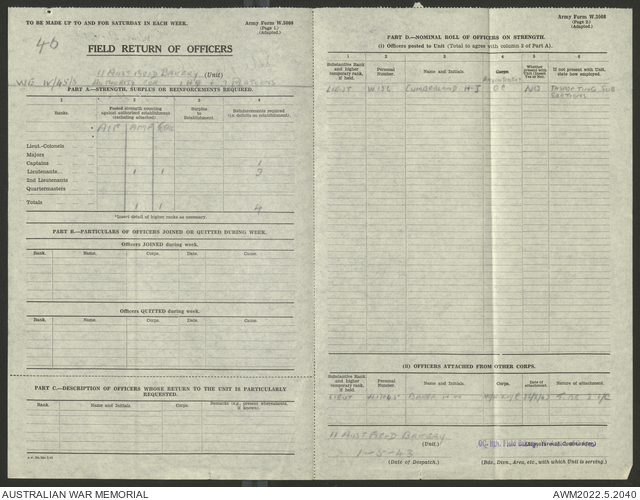 TO BE MADE UP TO AND FOR SATURDAY IN EACH WEEK.
Army Form W.3008
(Page 1.)
(Adapted.)
46
FIELD RETURN OF OFFICERS
11 AUST FIELD BAKERY (Unit)
PART A.—STRENGTH, SURPLUS OR REINFORCEMENTS REQUIRED.
1 2 3 4
Ranks. Posted strength counting against authorized establishment (excluding attached). Surplus to Establishment. Reinforcements required (i.e. deficits on establishment).
AIF AMF
Lieut.-Colonels
Majors
Captains 1
Lieutenants 1 3
2nd Lieutenants
Quartermasters
Totals 1 1 4
*Insert detail of higher ranks as necessary.
PART B.—PARTICULARS OF OFFICERS JOINED OR QUITTED DURING WEEK.
Officers JOINED during week.
Rank. Name. Corps. Date. Cause.
Officers QUITTED during week.
Rank. Name. Corps. Date. Cause.
PART C.—DESCRIPTION OF OFFICERS WHOSE RETURN TO THE UNIT IS PARTICULARLY REQUESTED.
Rank. Name and Initials. Corps. Remarks (e.g., present whereabouts, if known).
Army Form W.3008
(Page 2.)
(Adapted.)
PART D.—NOMINAL ROLL OF OFFICERS ON STRENGTH.
(i) Officers posted to Unit (Total to agree with column 2 of Part A).
1 2 3 4 5 6
Substantive Rank and higher temporary rank, if held. Personal Number. Name and Initials. Corps. Whether present with Unit (Insert Yes or No). If not present with Unit, state how employed.
LIEUT CUMBERLAND NO
(ii) OFFICERS ATTACHED FROM OTHER CORPS.
Substantive Rank and higher temporary rank, if held. Personal Number. Name and Initials. Corps. Date of attachment. Nature of attachment.
LIEUT BAKER
11 AUST FIELD BAKERY (Unit.)
1-5-43
(Date of Despatch.) (Bde., Divn., Area, etc., with which Unit is serving.)
AUSTRALIAN WAR MEMORIAL
AWM2022.5.2040